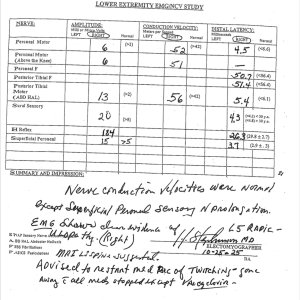 LOWER EXTREMITY EMG/NCV STUDY
NERVE: AMPLITUDE: CONDUCTION VELOCITY: DISTAL LATENCY:
Milli or Micro Volts Meters per Second Milliseconds
LEFT RIGHT Normal LEFT RIGHT Normal LEFT RIGHT Normal
Peroneal Motor 6 (>2) 52 (>42) 4.5 (<6.6)
Peroneal Motor
(Above the Knee) 6 51 —
Peroneal F
Posterior Tibial F 50.7 (<56.4)
51.4 (<56.4)
Posterior Tibial Motor
(ABD HAL) 13 (>2) 56 (>42) 5.4 (<6.1)
Sural Sensory 20 (>8) 4.3
H Reflex 184 26.3 (29.8 ± 2.7)
Superficial Peroneal 15 >5 3.7 (2.9 ± .3)
SUMMARY AND IMPRESSION:
Nerve conduction velocities were normal
except Superficial Peroneal sensory N prolongation.
EMG showed clear evidence of L5 RADIC-
ULOPATHY. (Right)
MD
ELECTROMYOGRAPHER
10-25-25
suggested.
Advised to restart med
Away I all meds stopped except